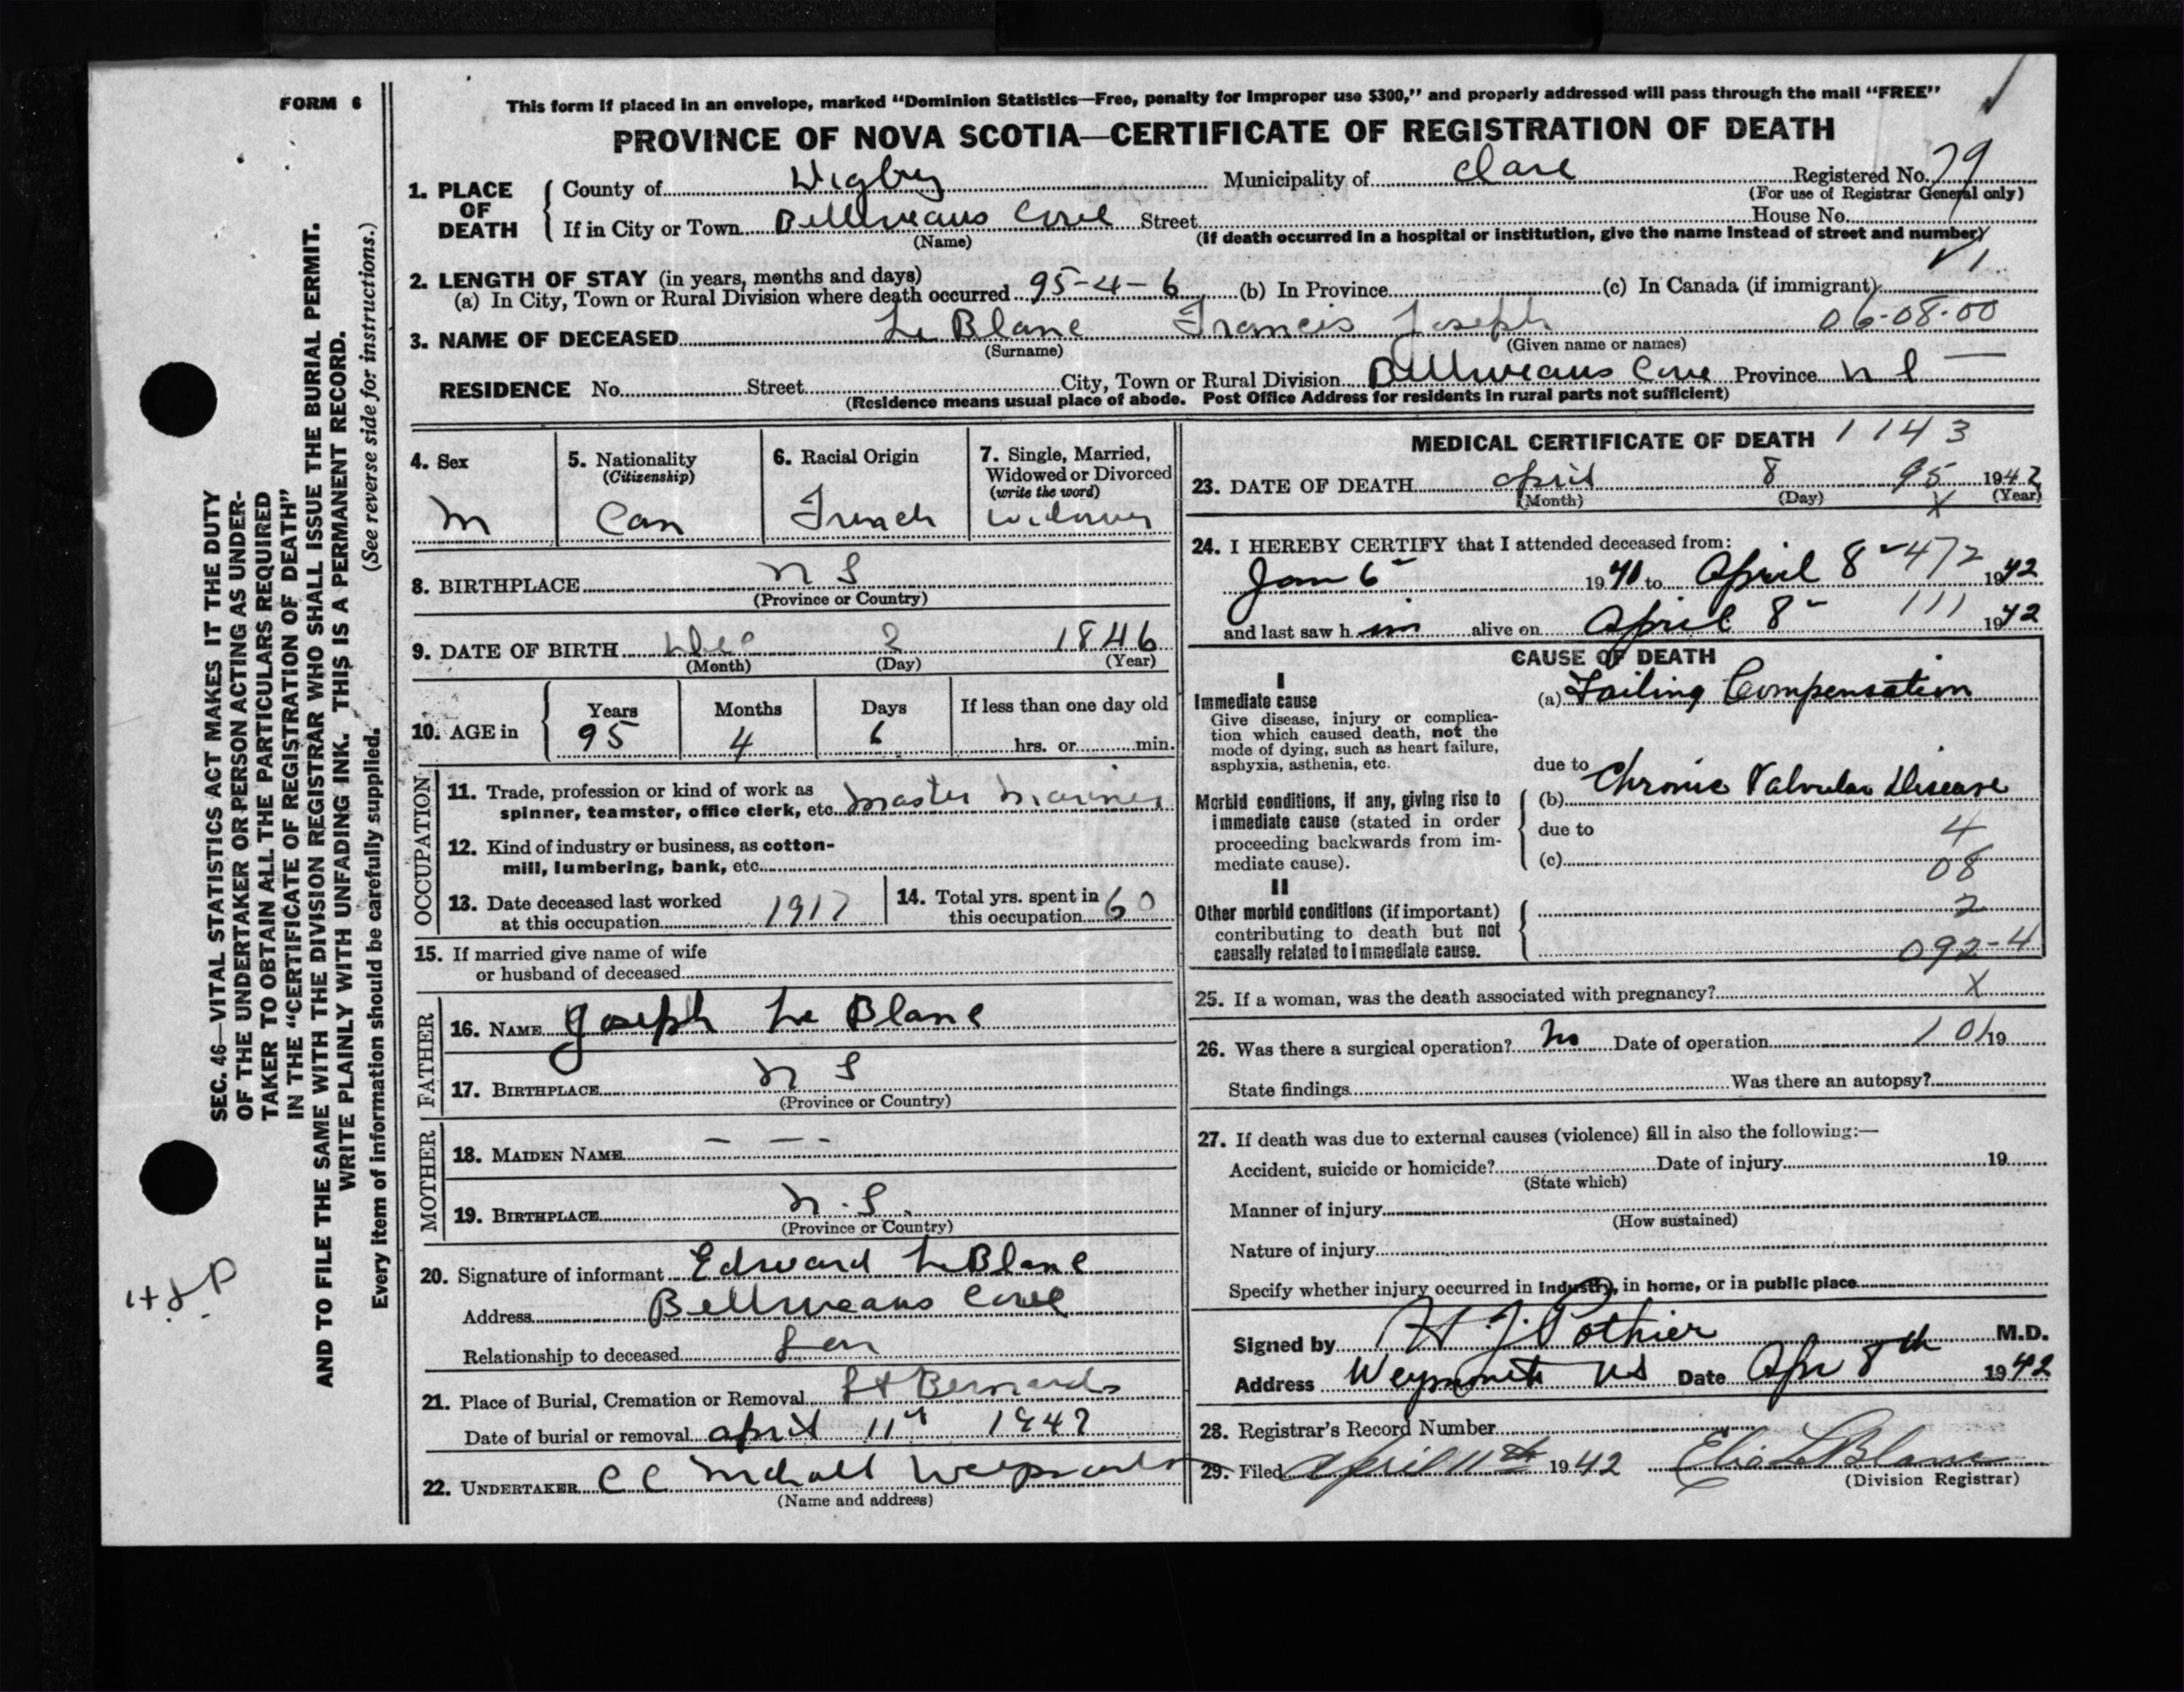 FORM 6
This form if placed in an envelope, marked "Dominion Statistics—Free, penalty for improper use $300," and properly addressed will pass through the mail "FREE"
PROVINCE OF NOVA SCOTIA—CERTIFICATE OF REGISTRATION OF DEATH
1. PLACE OF DEATH
County of Digby Municipality of Clare Registered No. 79
(For use of Registrar General only)
If in City or Town Belliveaus Cove Street House No.
(Name) (If death occurred in a hospital or institution, give the name instead of street and number)
2. LENGTH OF STAY (in years, months and days)
(a) In City, Town or Rural Division where death occurred 95-4-6 (b) In Province (c) In Canada (if immigrant)
3. NAME OF DECEASED Le Blanc Francis Joseph 06-08-00
(Surname) (Given name or names)
RESIDENCE No. Street City, Town or Rural Division Belliveaus Cove Province N S
(Residence means usual place of abode. Post Office Address for residents in rural parts not sufficient)
4. Sex
M
5. Nationality
(Citizenship)
Can
6. Racial Origin
French
7. Single, Married,
Widowed or Divorced
(write the word)
Widower
8. BIRTHPLACE N S
(Province or Country)
9. DATE OF BIRTH Dec 2 1846
(Month) (Day) (Year)
10. AGE in
Years Months Days If less than one day old
95 4 6 hrs. or min.
OCCUPATION
11. Trade, profession or kind of work as
spinner, teamster, office clerk, etc. Master Mariner
12. Kind of industry or business, as cotton-
mill, lumbering, bank, etc.
13. Date deceased last worked
at this occupation 1917
14. Total yrs. spent in
this occupation 60
15. If married give name of wife
or husband of deceased
FATHER
16. NAME Joseph Le Blanc
17. BIRTHPLACE N S
(Province or Country)
MOTHER
18. MAIDEN NAME — — -
19. BIRTHPLACE N.S.
(Province or Country)
20. Signature of informant Edward LeBlanc
Address Belliveaus Cove
Relationship to deceased Son
21. Place of Burial, Cremation or Removal St Bernards
Date of burial or removal April 11th 1942
22. UNDERTAKER C C
(Name and address)
MEDICAL CERTIFICATE OF DEATH 1143
23. DATE OF DEATH April 8 95 1942
(Month) (Day) (Year)
X
24. I HEREBY CERTIFY that I attended deceased from:
Jan 6 1941 to April 8 472 1942
and last saw him alive on April 8 111 1942
CAUSE OF DEATH
I
Immediate cause
Give disease, injury or complica-
tion which caused death, not the
mode of dying, such as heart failure,
asphyxia, asthenia, etc.
(a) Failing Compensation
due to
Morbid conditions, if any, giving rise to
immediate cause (stated in order
proceeding backwards from im-
mediate cause).
(b) Chronic Valvular Disease
due to 4
(c) 08
II
Other morbid conditions (if important)
contributing to death but not
causally related to immediate cause.
2
092-4
25. If a woman, was the death associated with pregnancy? X
26. Was there a surgical operation? No Date of operation 101 19
State findings Was there an autopsy?
27. If death was due to external causes (violence) fill in also the following:—
Accident, suicide or homicide? Date of injury 19
(State which)
Manner of injury
(How sustained)
Nature of injury
Specify whether injury occurred in industry, in home, or in public place
Signed by H. J. Pothier M.D.
Address Weymouth NS Date Apr 8th 1942
28. Registrar's Record Number
29. Filed April 11th 1942 LeBlanc
(Division Registrar)
SEC. 46—VITAL STATISTICS ACT MAKES IT THE DUTY
OF THE UNDERTAKER OR PERSON ACTING AS UNDER-
TAKER TO OBTAIN ALL THE PARTICULARS REQUIRED
IN THE "CERTIFICATE OF REGISTRATION OF DEATH"
AND TO FILE THE SAME WITH THE DIVISION REGISTRAR WHO SHALL ISSUE THE BURIAL PERMIT.
WRITE PLAINLY WITH UNFADING INK. THIS IS A PERMANENT RECORD.
Every item of information should be carefully supplied. (See reverse side for instructions.)